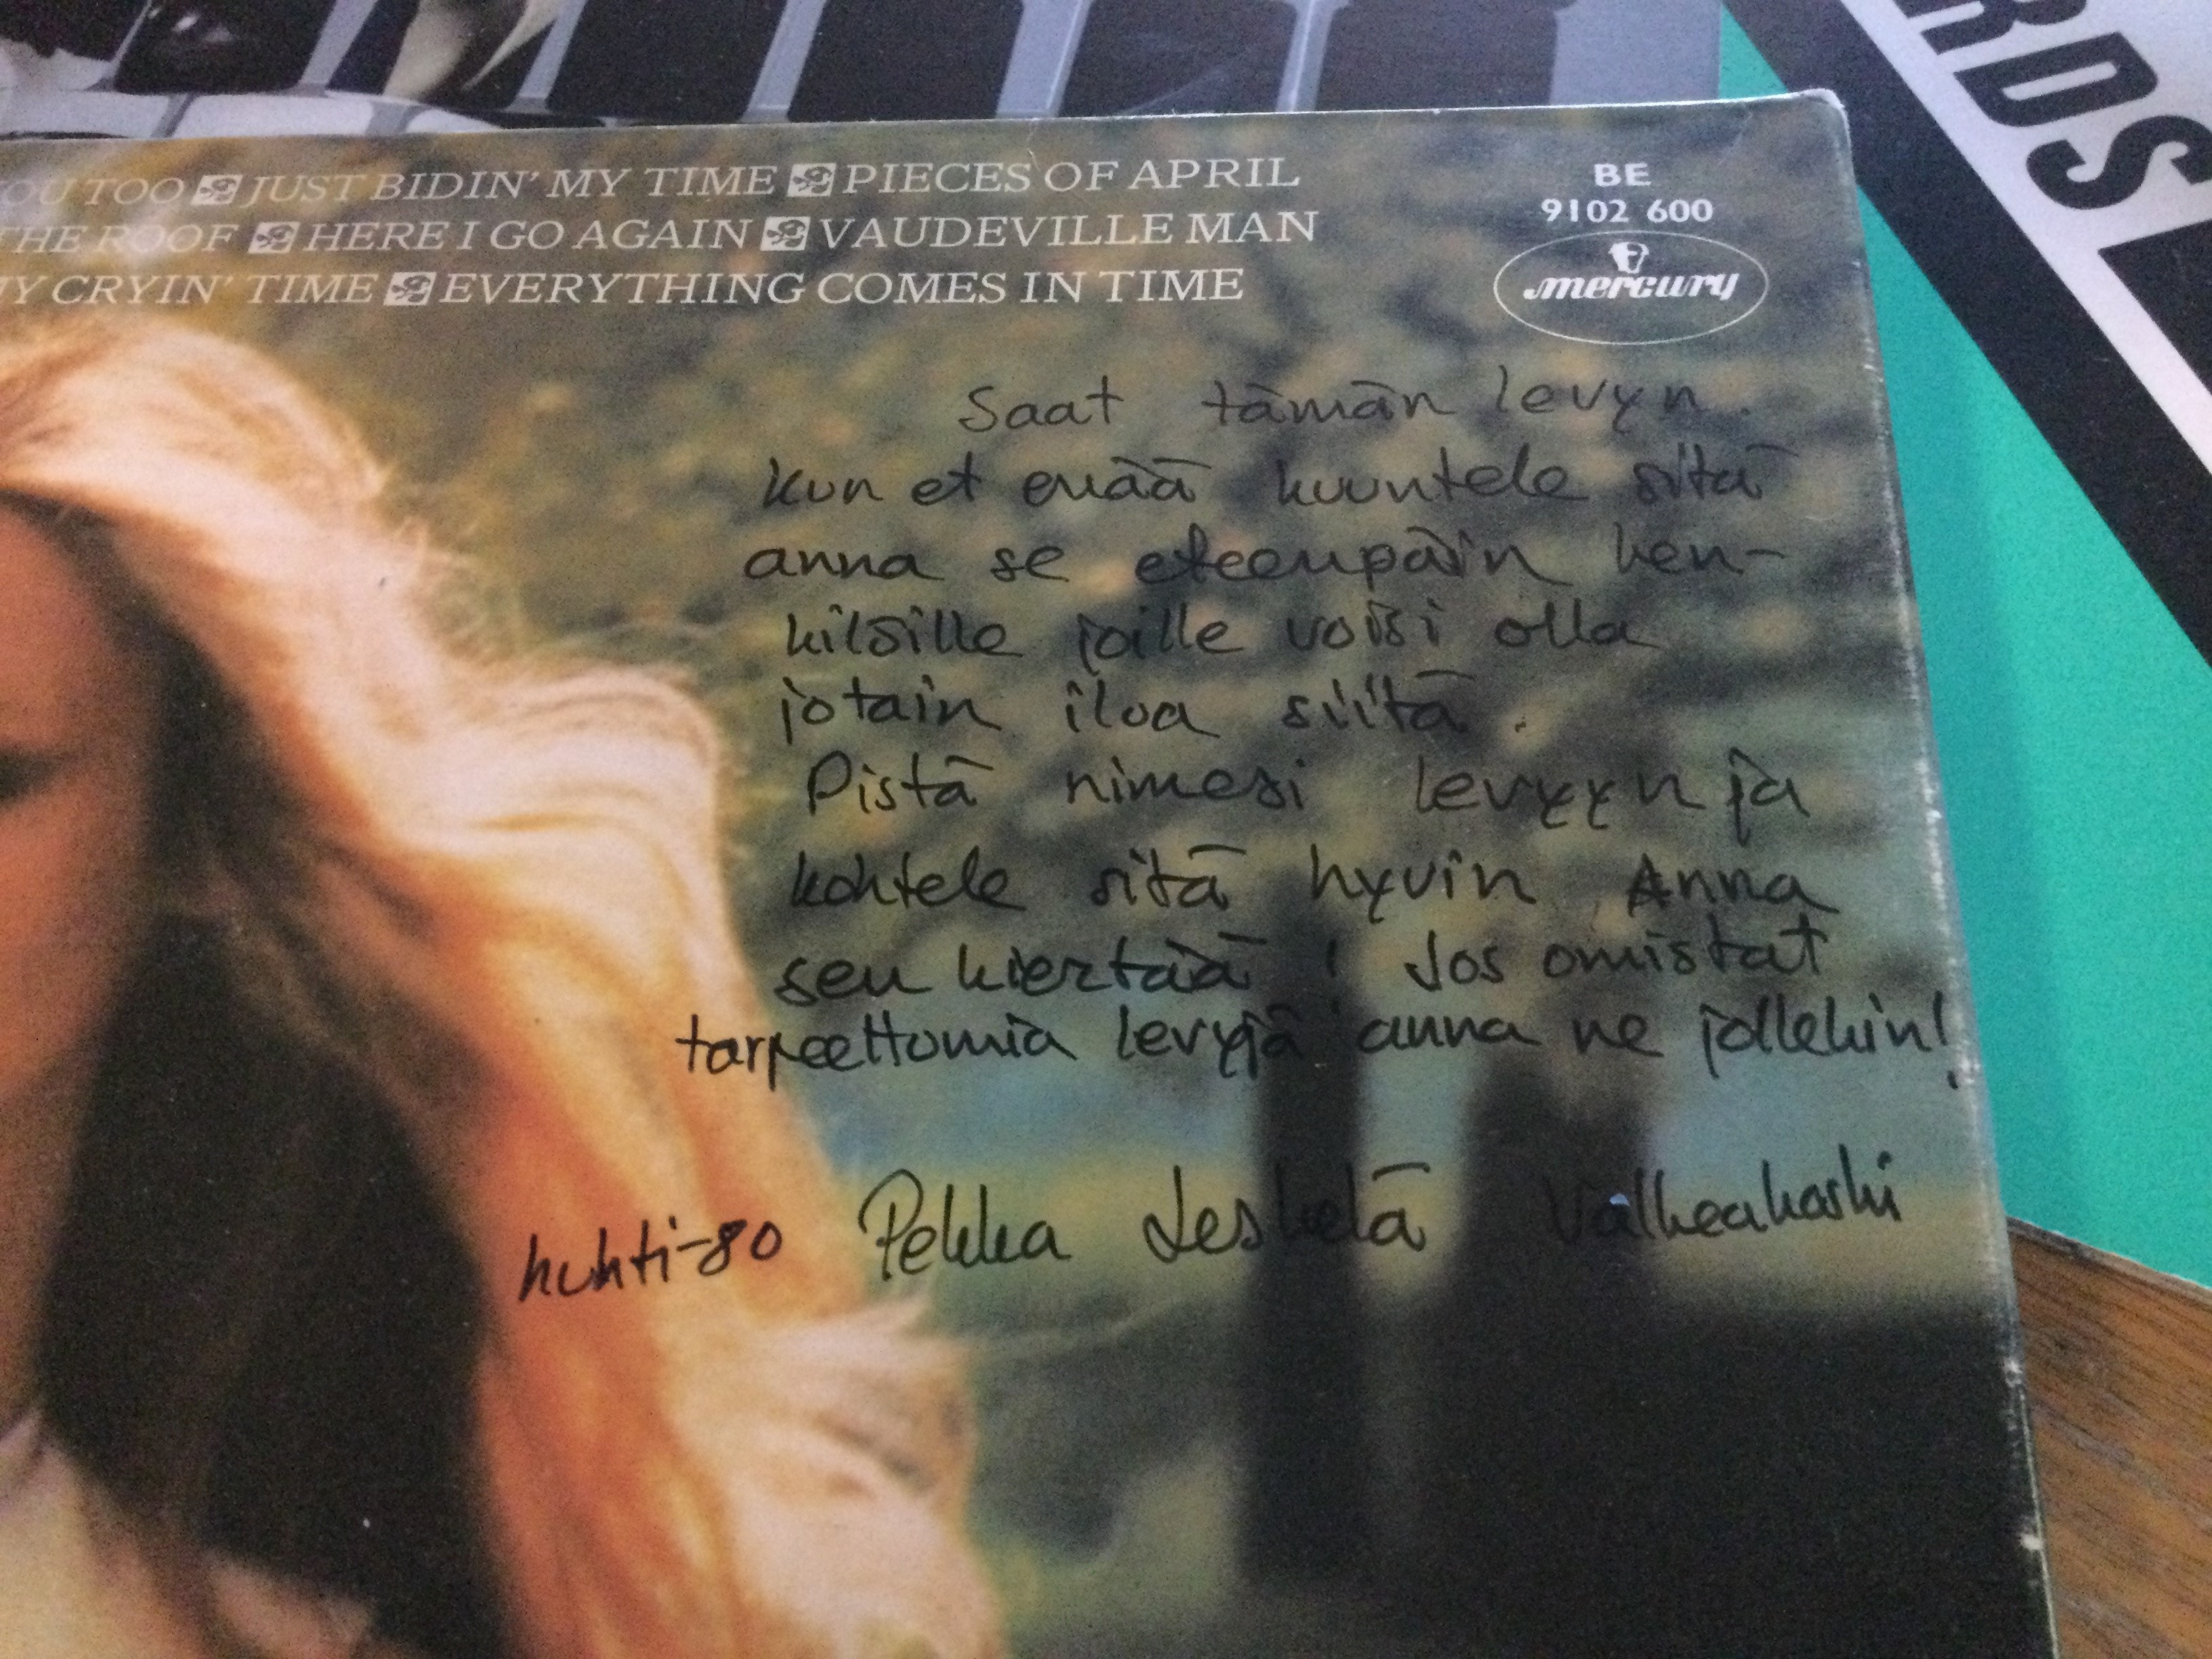 YOU TOO JUST BIDIN' MY TIME PIECES OF APRIL
THE ROOF HERE I GO AGAIN VAUDEVILLE MAN
MY CRYIN' TIME EVERYTHING COMES IN TIME
BE
9102 600
mercury
RDS
Saat tämän levyn.
kun et enää kuuntele sitä
anna se eteenpäin hen-
kilöille joille voisi olla
jotain iloa siitä.
Pistä nimesi levyyn ja
kohtele sitä hyvin Anna
sen kiertää! Jos omistat
tarpeettomia levyjä anna ne jollekin!
huhti-80 Pekka Leskelä Valkeakoski